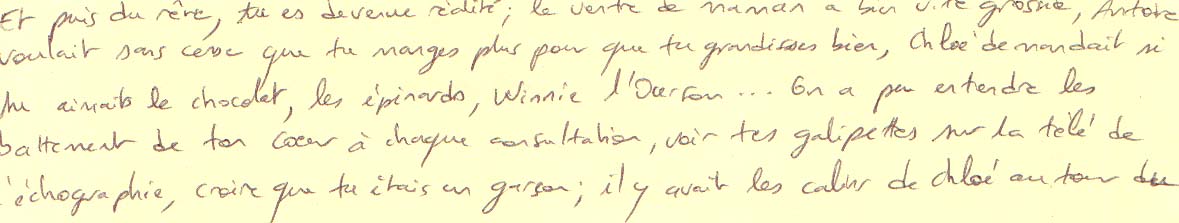 Et puis du rêve, tu es devenue réalité ; le ventre de maman a bien vite grossi, Antoine
voulait sans cesse que tu manges plus pour que tu grandisses bien, Chloé demandait si
tu aimais le chocolat, les épinards, Winnie l'Ourson ... On a pu entendre les
battement de ton coeur à chaque consultation, voir tes galipettes sur la télé de
l'échographie, croire que tu étais un garçon ; il y avait les calins de Chloé autour du